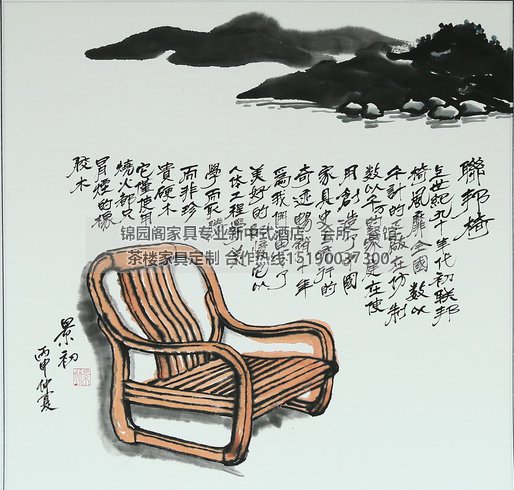 聯邦椅
上世紀九十年代初联邦
椅風靡全國 数以
千計的工厰在仿制
数以千万的家庭在使
用創造了國
家具史流行的
奇迹暢銷十年
爲我們留下了
美好的記憶它以
人体工程
學而取勝
而非珍
貴硬木
它僅使用
燒火都只
冒煙的橡
胶木
景初
丙申仲夏
锦园阁家具专业新中式酒店、会所、宾馆
茶楼家具定制 合作热线15190037300